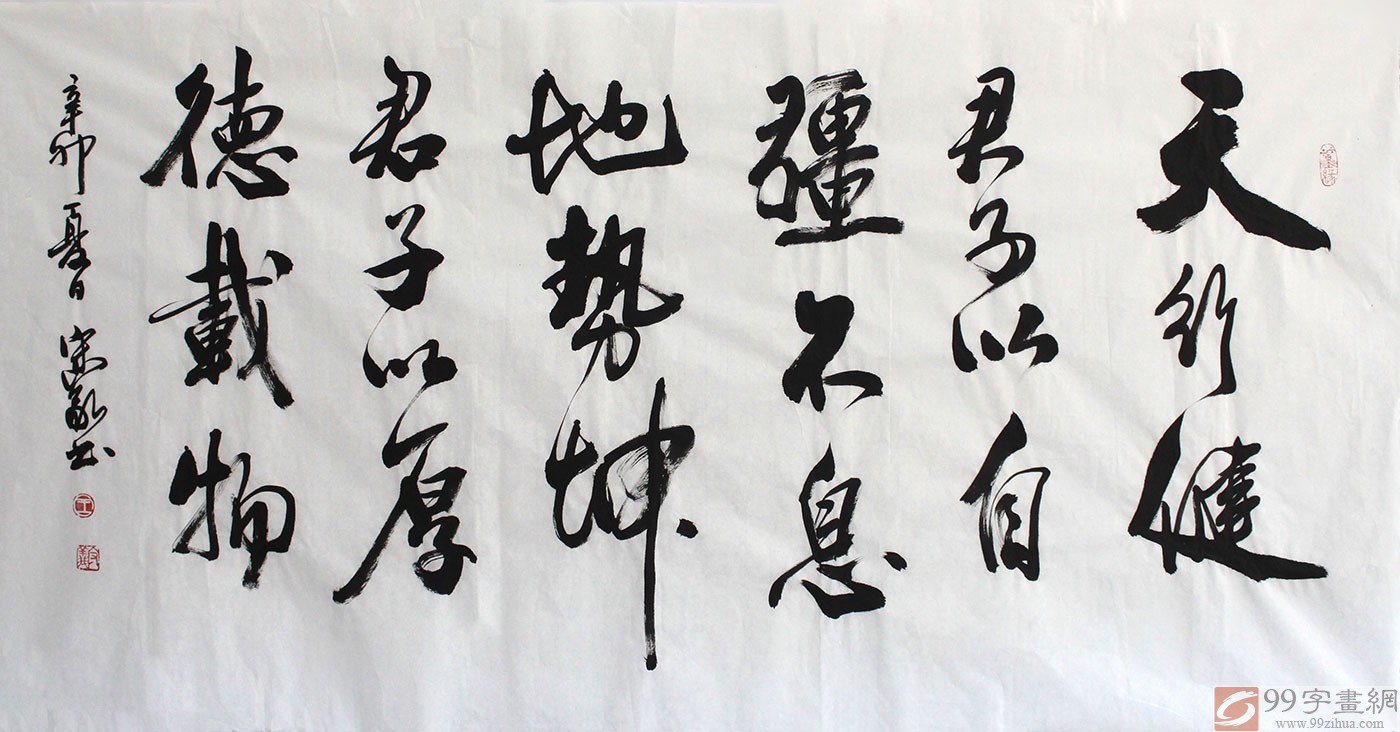 天行健
君子以自
彊不息
地勢坤
君子以厚
德載物
辛卯夏日宋敬书
99字畫網
www.99zihua.com